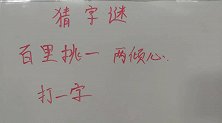 猜字谜
百里挑一 两倾心.
打一字